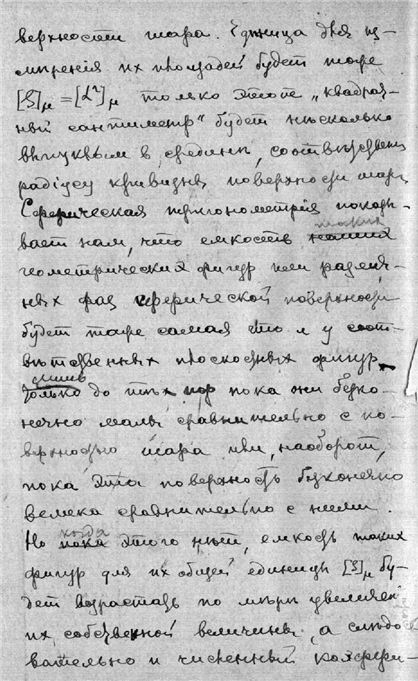 верхности шара. Единица для из-
мѣренія их площадей будет тоже
[S]μ = [L²]μ только этот „квадрат-
ный сантиметр“ будет нѣсколько
выпуклым в срединѣ, соотвѣтственно
радіусу кривизны поверхности шара
Сферическая тригонометрія показы-
вает нам, что емкость таких
геометрических фигур или различ-
ных фаз сферической поверхности
будет тоже самая что и у соот-
вѣтственных плоскостных фигур
лишь
только до тѣх пор пока они безко-
нечно малы сравнительно с по-
верхностью шара или, наоборот,
пока эта поверхность безконечно
велика сравнительно с ними.
Но когда этого нѣт, емкость таких
фигур для их общей единицы [S]μ бу-
дет возрастать по мѣрѣ увеличенія
их собственной величины, а слѣдо-
вательно и численный коэффи-